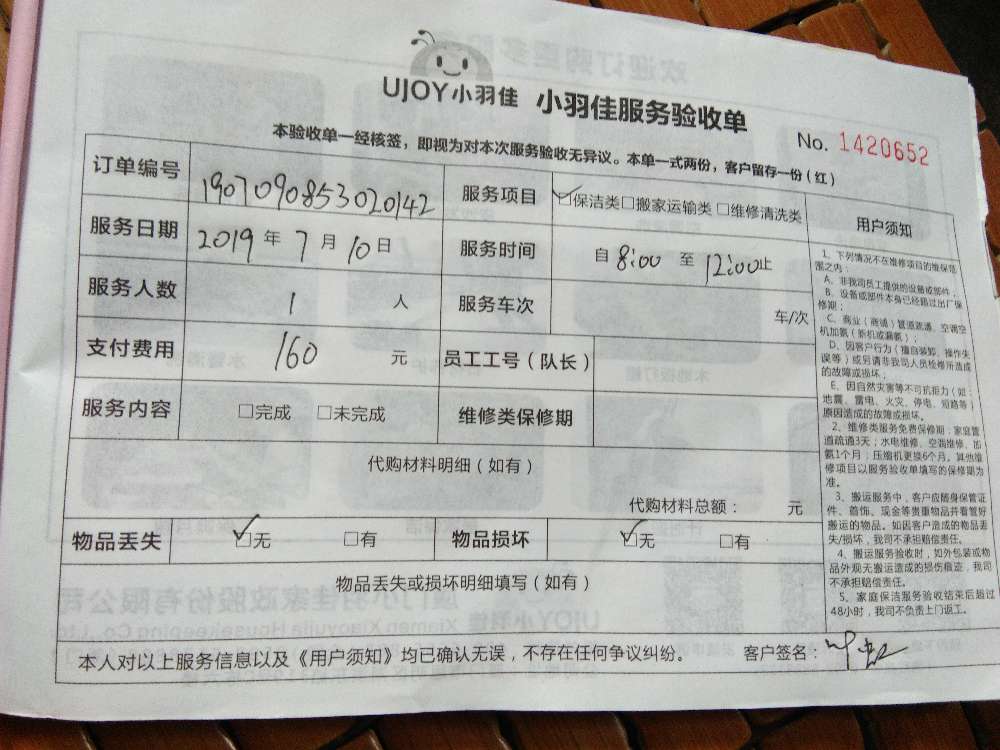 UJOY小羽佳 小羽佳服务验收单
No. 1420652
本验收单一经核签，即视为对本次服务验收无异议。本单一式两份，客户留存一份(红)
订单编号 1907090853020142 服务项目 ☑保洁类 □搬家运输类 □维修清洗类
服务日期 2019年7月10日 服务时间 自 8:00 至 12:00止
服务人数 1 人 服务车次 车/次
支付费用 160 元 员工工号(队长)
服务内容 □完成 □未完成 维修类保修期
代购材料明细(如有)
代购材料总额： 元
物品丢失 ☑无 □有 物品损坏 ☑无 □有
物品丢失或损坏明细填写(如有)
本人对以上服务信息以及《用户须知》均已确认无误，不存在任何争议纠纷。 客户签名：
用户须知
1、下列情况不在维修项目的维保范
围之内：
A、非我司员工提供的设备或部件；
B、设备或部件本身已经超过出厂保
修期；
C、商业(商铺)管道疏通、空调空
机加氨(新机或漏氨)；
D、因客户行为(擅自装卸、操作失
误等)或另请非我司人员检修所造成
的故障或损坏；
E、因自然灾害等不可抗拒力(如：
地震、雷电、火灾、停电、短路等)
原因造成的故障或损坏。
2、维修类服务免费保修期：家庭管
道疏通3天；水电维修、空调维修、加
氨1个月；压缩机更换6个月。其他维
修项目以服务验收单填写的保修期为
准。
3、搬运服务中，客户应随身保管证
件、首饰、现金等贵重物品并看管好
搬运的物品。如因客户造成的物品丢
失/损坏，我司不承担赔偿责任。
4、搬运服务验收时，如外包装或物
品外观无搬运造成的损伤痕迹，我司
不承担赔偿责任。
5、家庭保洁服务验收结束后超过
48小时，我司不负责上门返工。